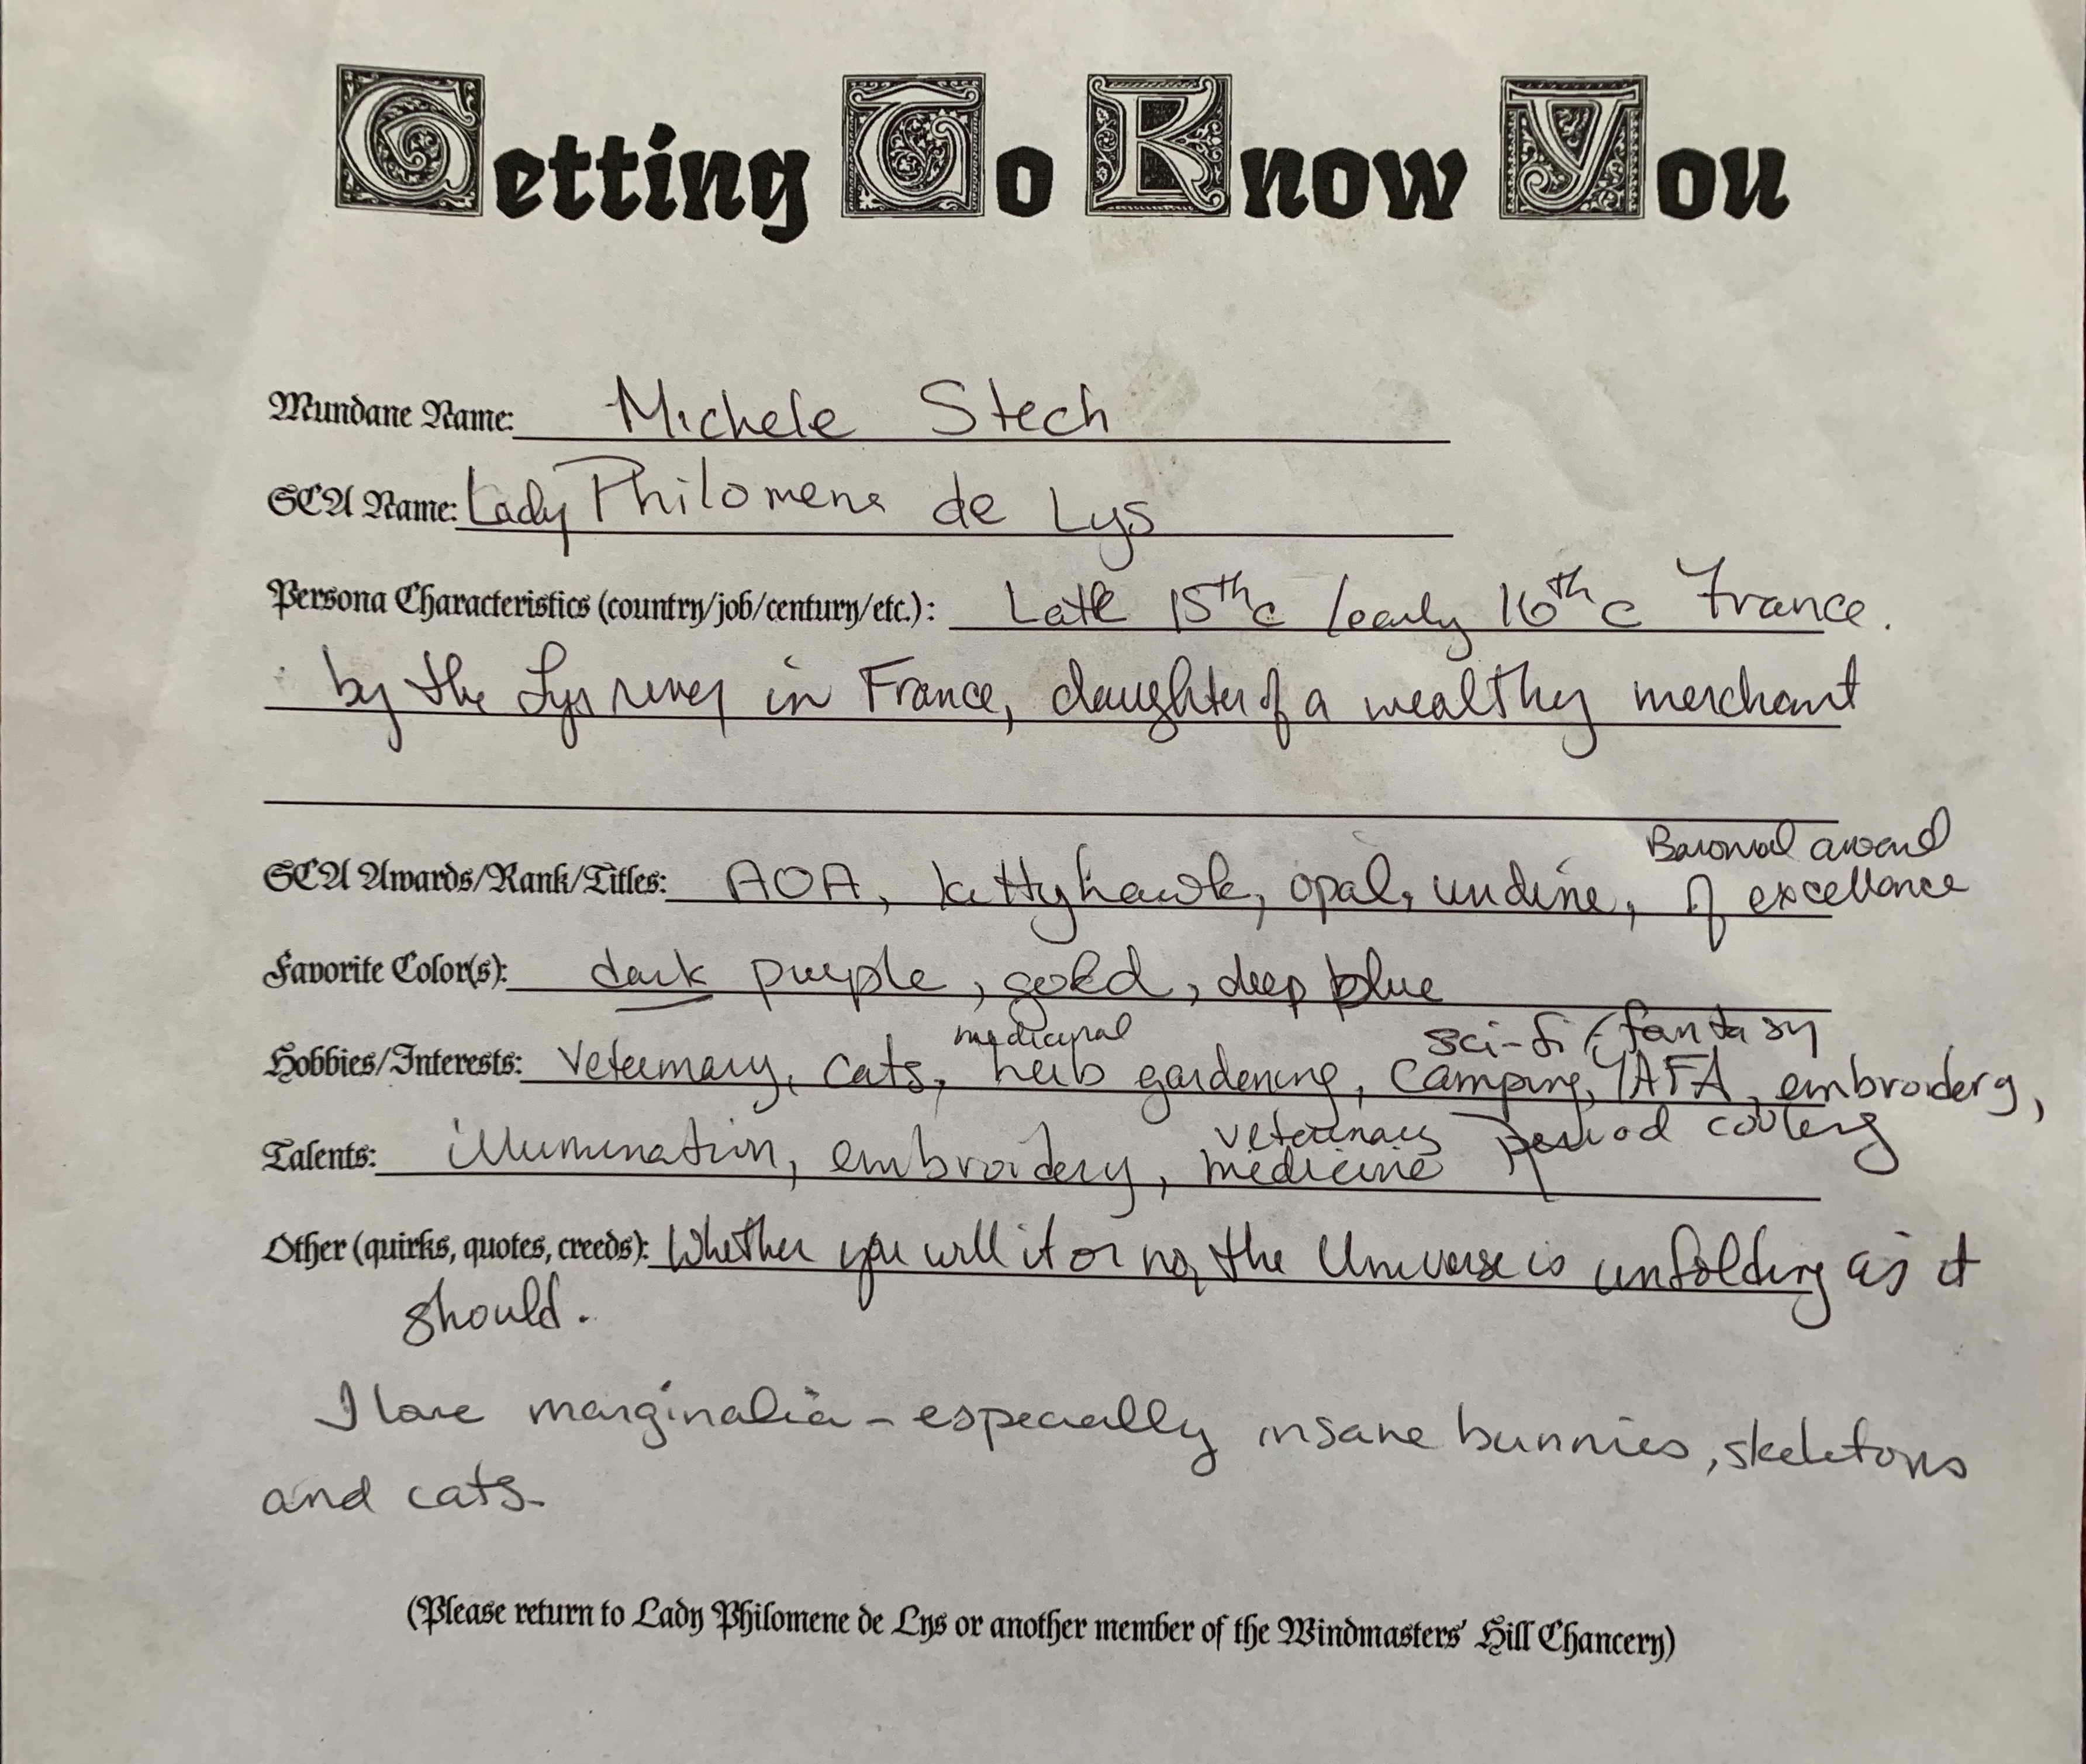 Getting To Know You
Mundane Name: Michele Stech
SCA Name: Lady Philomene de Lys
Persona Characteristics (country/job/century/etc.): Late 15th c /early 16th c France.
by the Lys river in France, daughter of a wealthy merchant
Baronial award
SCA Awards/Rank/Titles: AOA, kittyhawk, opal, undine, of excellance
Favorite Color(s): dark purple, gold, deep blue
medicinal sci-fi/fantasy
Hobbies/Interests: Veterinary, cats, herb gardening, camping, embroidery,
veterinary period cooking
Talents: illumination, embroidery, medicine
Other (quirks, quotes, creeds): Whether you will it or no, the Universe is unfolding as it
should.
I love marginalia - especially insane bunnies, skeletons
and cats.
(Please return to Lady Philomene de Lys or another member of the Windmasters' Hill Chancery)